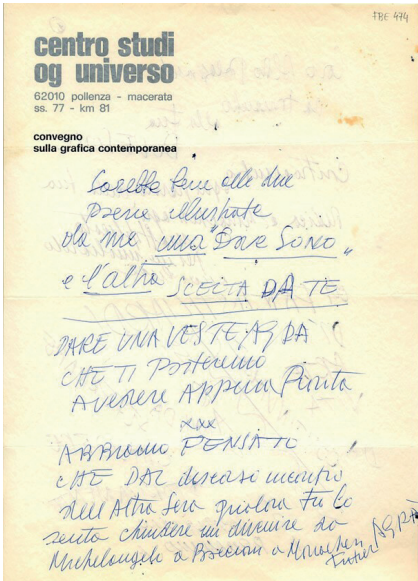 FBE 474
centro studi
og universo
62010 pollenza - macerata
ss. 77 - km 81
convegno
sulla grafica contemporanea
Sarebbe bene alle due
Poesie illustrate
da me una "Dove Sono"
e l'altra SCELTA DA TE
DARE UNA VESTE
CHE TI Porteremo
A vedere Appena Pronta
xxx
ABBIAMO PENSATO
CHE DAL discorso
dell'Altra Sera
un divenire da
Michelangelo a Boccioni a